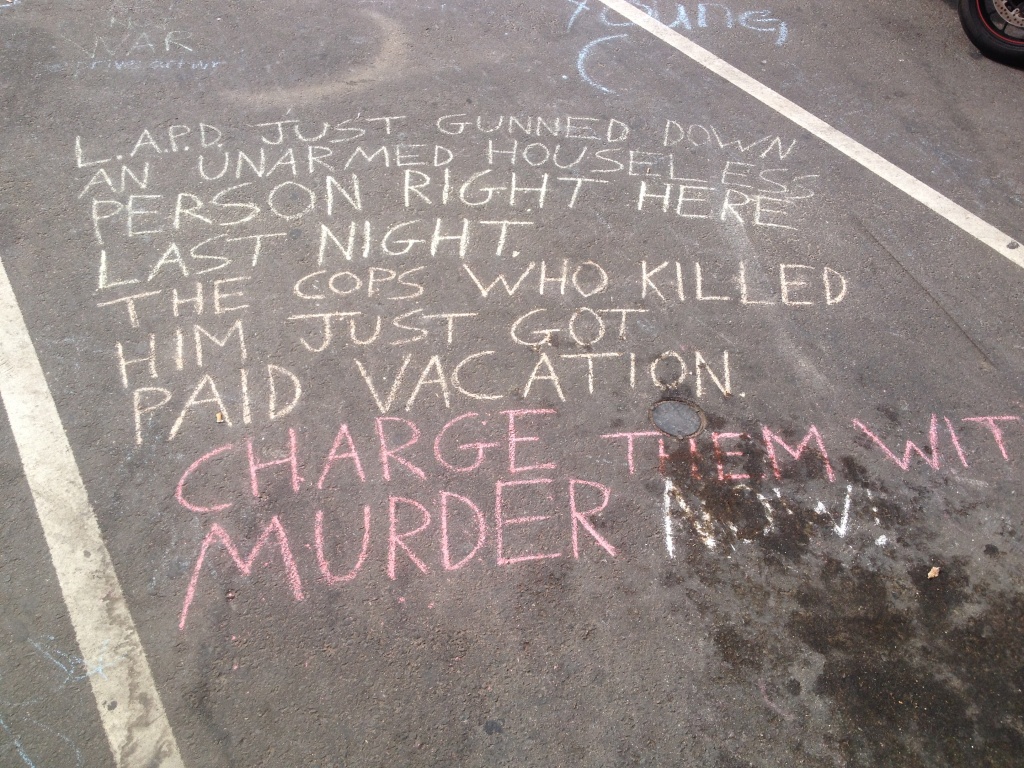 WAR
Young
L.A.P.D. JUST GUNNED DOWN
AN UNARMED HOUSELESS
PERSON RIGHT HERE
LAST NIGHT.
THE COPS WHO KILLED
HIM JUST GOT
PAID VACATION.
CHARGE THEM WIT
MURDER NOW.